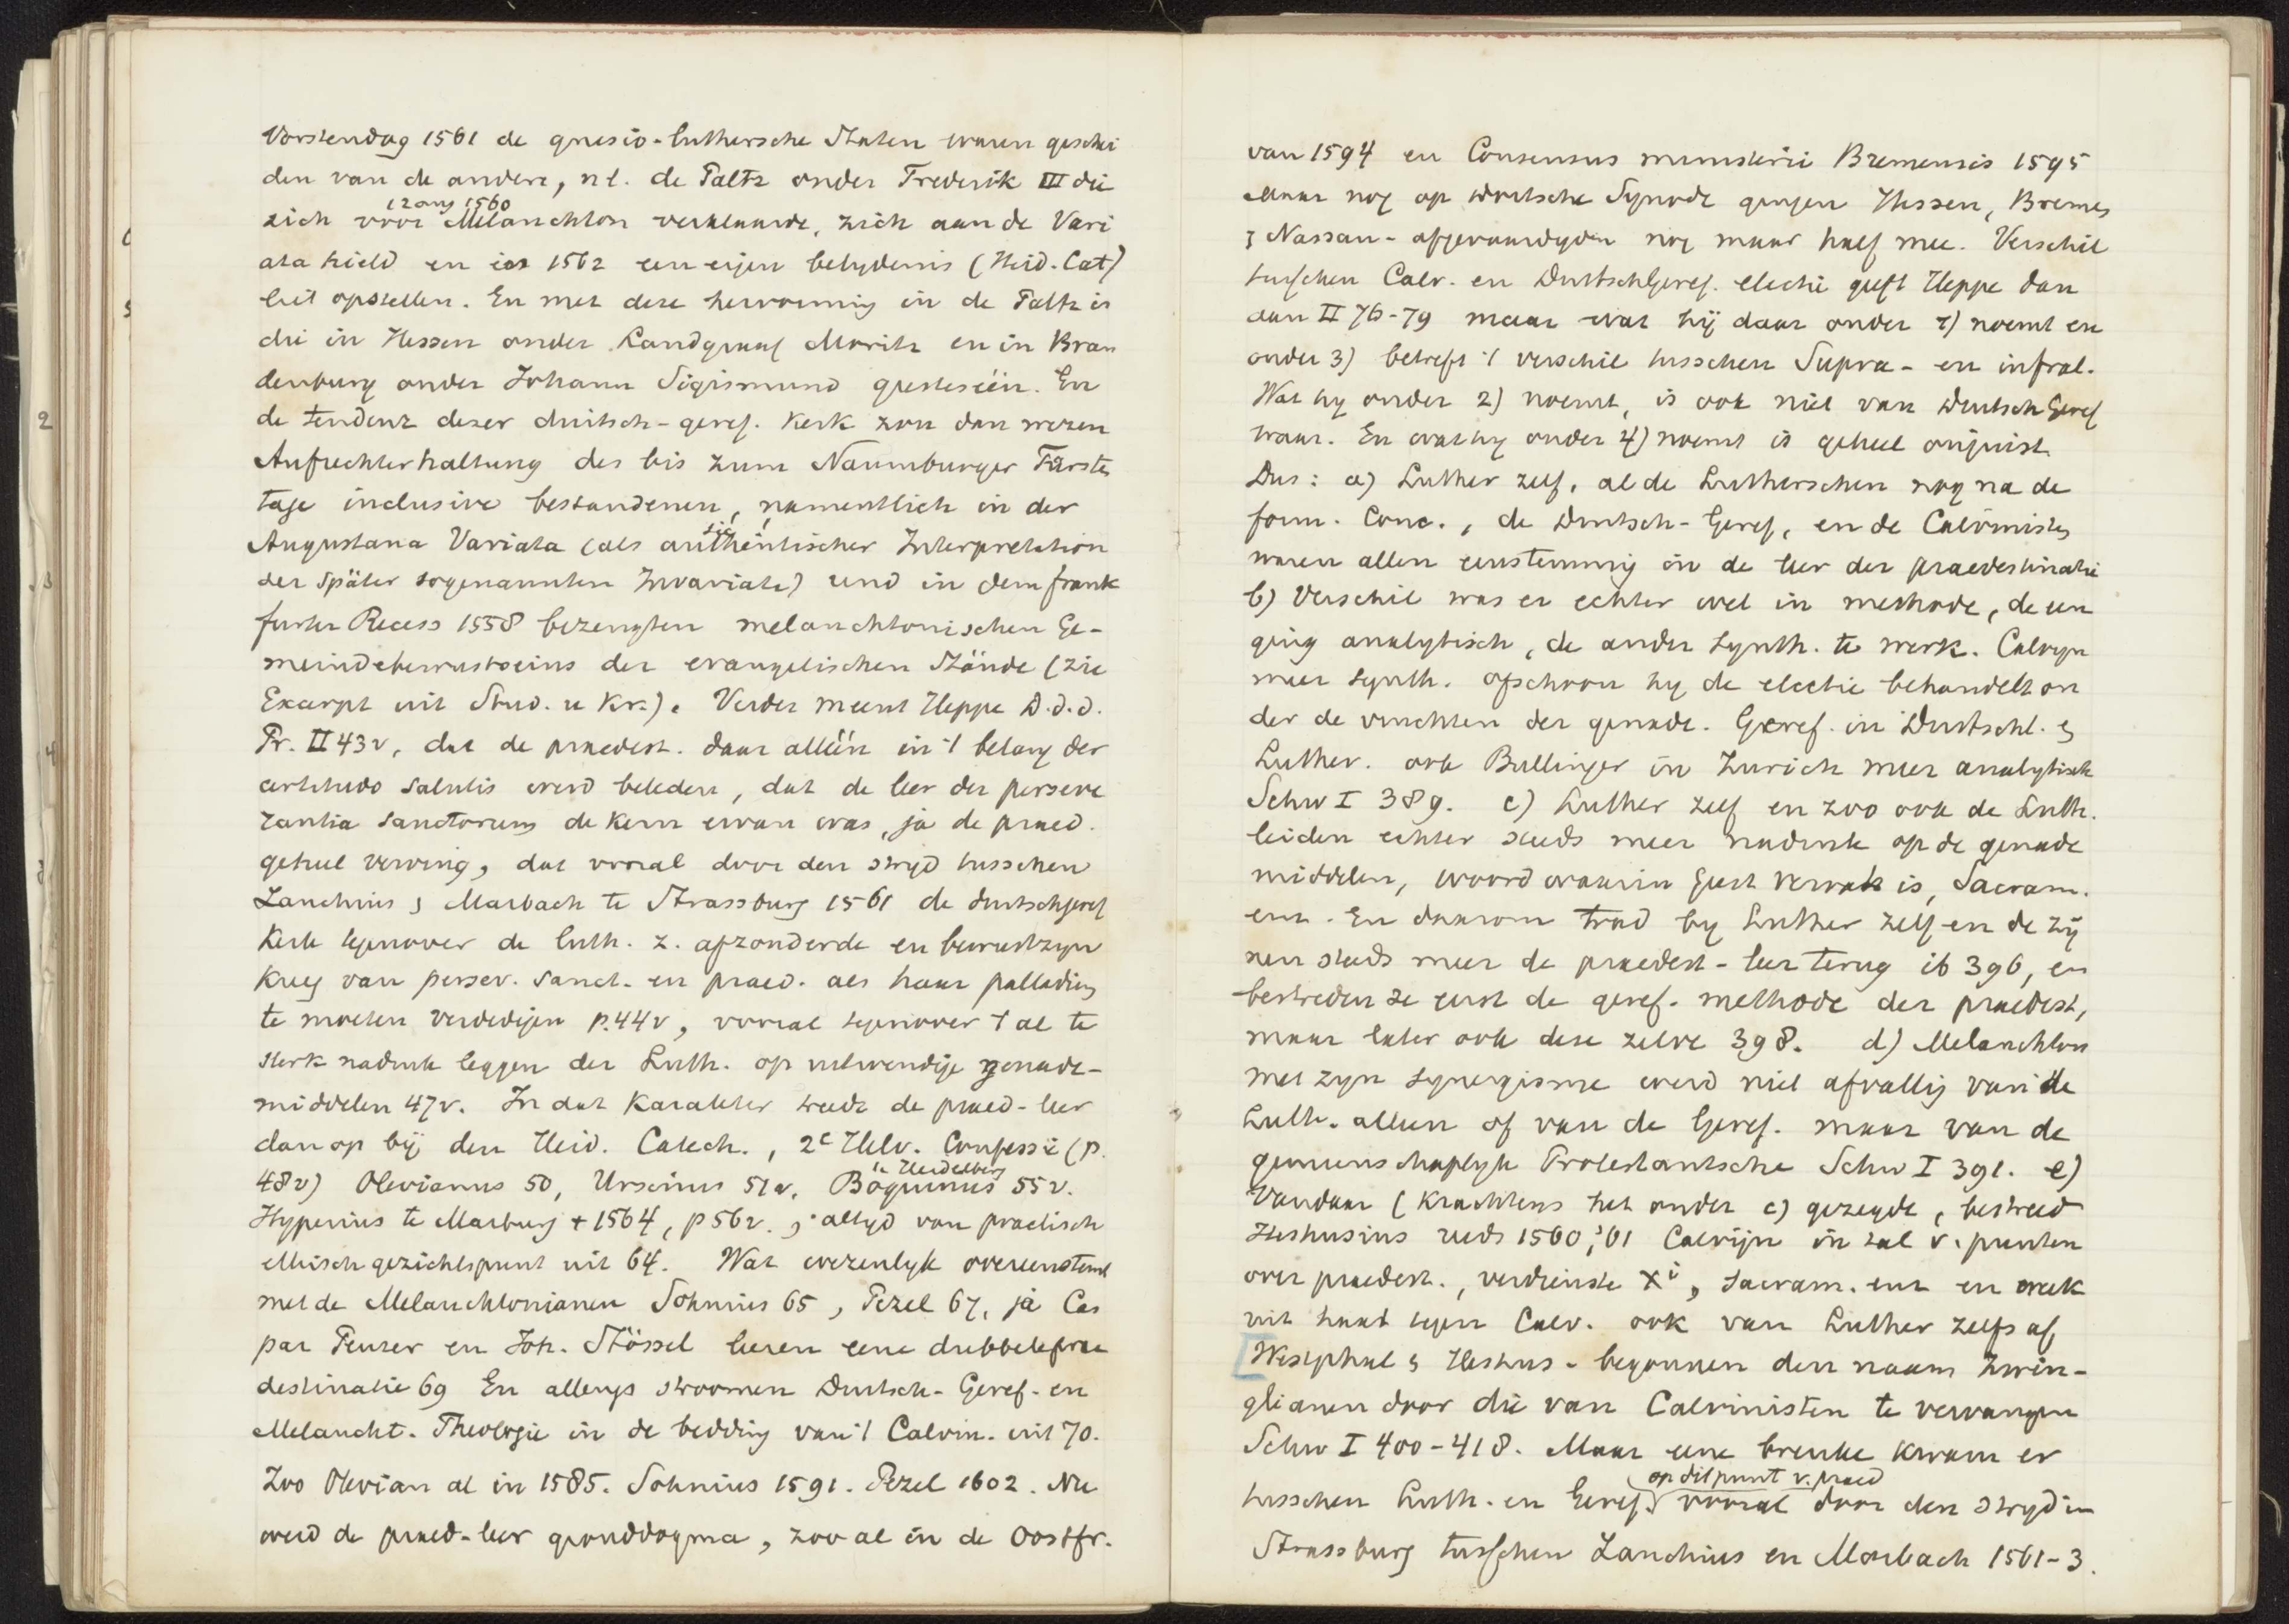 Vorstendag 1561 de gnesio-luthersche Staten waren geschei
den van de andere, nl. de Paltz onder Frederik III die
12 aug 1560
zich voor Melanchton verklaarde, zich aan de Vari
ata hield en in 1562 een eigen belydenis (Heid. Cat)
liet opstellen. En met deze hervorming in de Paltz is
die in Hessen onder Landgraaf Moritz en in Bran
denburg onder Johann Sigismund
de tendenz dezer duitsch-geref. Kerk zou dan wezen
Aufrechterhaltung des bis zum Naumburger Fürsten
tage inclusive bestandenen, namentlich in der
sic!
Augustana Variata (als authentischer Interpretation
der später sogenannten Invariata) und in dem frank
furter Recess 1558 bezeugten melanchtonischen Ge-
meindebewustseins der evangelischen Stände (zie
Excerpt uit Stud. u Kr.). Verder meent Heppe D.d.d.
Pr. II 43v, dat de praedest. daar alléén in 't belang der
certitudo salutis werd beleden, dat de leer der perseve
rantia sanctorum de kern ervan was, ja de praed.
geheel verving, dat vooral door den stryd tusschen
Zanchius & Marbach te Strassburg 1561 de duitschgeref
Kerk tegenover de luth. z. afzonderde en bewustzyn
kreeg van persev. sanct. en praed. als haar palladium
te moeten verdedigen p.44v, vooral tegenover 't al te
sterk nadruk leggen der Luth. op uitwendige genade-
middelen 47v. In dat karakter treedt de praed-leer
dan op bij den Heid. Catech., 2e Helv. Confessie (p.
te Heidelberg
48v) Olevianus 50, Ursinus 51v, Boquinus 55v.
Hyperius te Marburg + 1564, p 56v. & altyd van practisch
ethisch gezichtspunt uit 64. Wat wezenlyk overeenstemt
met de Melanchtonianen Sohnius 65, Pezel 67, ja Cas
par Peucer en Joh. Stössel leeren eene dubbele prae
destinatie 69 En allengs stroomen Duitsch-Geref. en
Melancht. Theologie in de bedding van 't Calvin. uit 70.
Zoo Olevian al in 1585. Sohnius 1591. Pezel 1602. Nu
werd de praed-leer gronddogma, zoo al in de Oostfr.
van 1594 en Consensus ministerii Bremensis 1595
Maar nog op Dortsche Synode gingen Hessen, Bremen
& Nassau-afgevaardigden nog maar half mee. Verschil
tusschen Calv. en DuitschGeref. electie geeft Heppe dan
aan II 76-79 maar wat hij daar onder 1) noemt en
onder 3) betreft 't verschil tusschen Supra- en infral.
Wat hy onder 2) noemt, is ook niet van DuitschGeref
waar. En wat hy onder 4) noemt is geheel onjuist.
Dus: a) Luther zelf, al de Lutherschen nog na de
form. Conc., de Duitsch-Geref, en de Calvinisten
waren allen eenstemmig in de leer der praedestinatie
b) Verschil was er echter wel in methode, de een
ging analytisch, de ander synth. te werk. Calvyn
meer synth. ofschoon hy de electie behandelt on
der de vruchten der genade. Geref. in Duitschl. &
Luther. ook Bullinger in Zurich meer analytisch
Schw I 389. c) Luther zelf en zoo ook de Luth.
leiden echter steeds meer nadruk op de genade
middelen, woord waarin geest vervat is, Sacram.
enz. En daarom trad by Luther zelf en de zij
nen steeds meer de praedest-leer terug ib 396, en
bestreden ze eerst de geref. methode der praedest,
maar later ook deze zelve 398. d) Melanchton
met zyn synergisme werd niet afvallig van de
Luth. alleen of van de Geref. maar van de
gemeenschaplyk Protestantsche Schw I 391. e)
Vandaar (krachtens het onder c) gezegde, bestreed
Heshusius reeds 1560, '61 Calvijn in tal v. punten
over praedest., verdienste Xi, sacram. enz en week
uit haat tegen Calv. ook van Luther zelfs af.
Westphal & Heshus. begonnen den naam Zwin-
glianen door die van Calvinisten te vervangen
Schw I 400-418. Maar eene breuke kwam er
op dit punt v. praed
tusschen Luth. en Geref. vooral door den stryd in
Strassburg tusschen Zanchius en Marbach 1561-3.